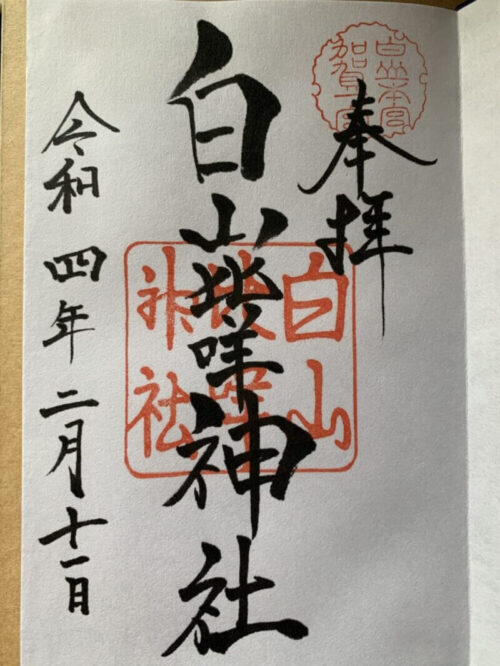 奉拝
白山本宮
加賀一宮
白山比咩神社
白山
比咩
神社
令和四年二月十一日